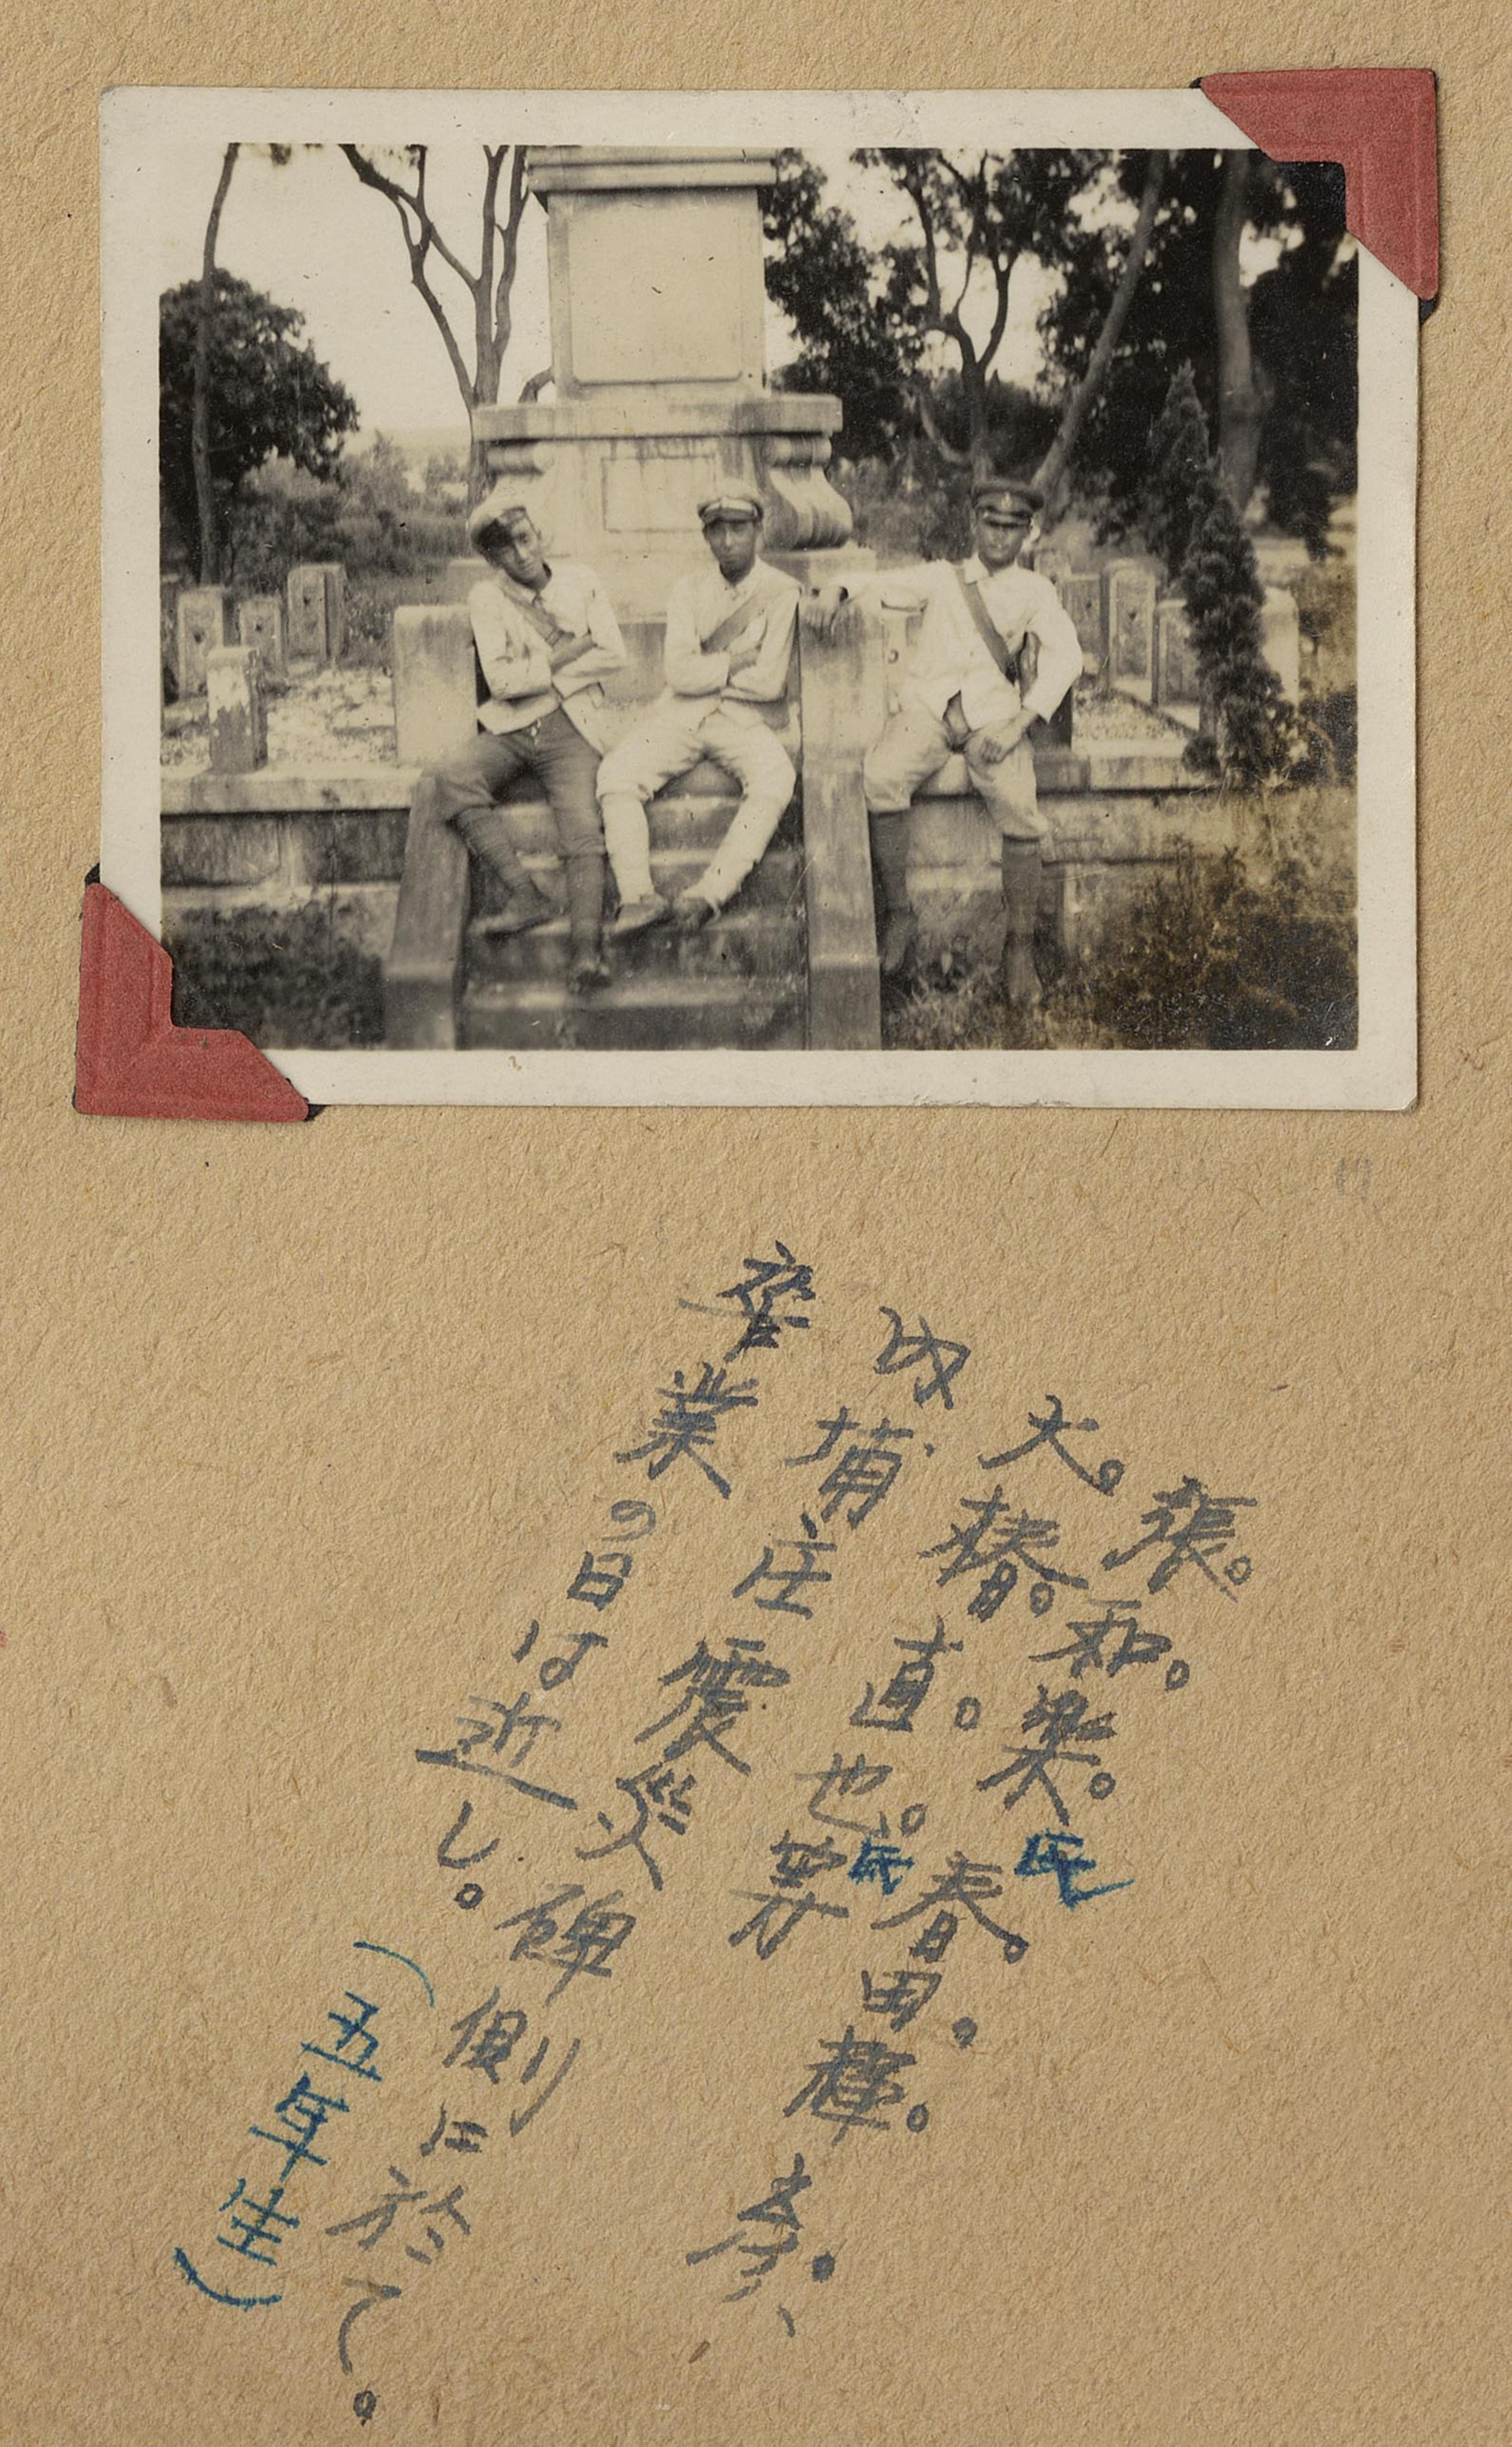 張。和。春。田。輝。彦
大。椿。直。也。
内埔庄震災碑側に於て。
卒業の日は近し。
(五年生)